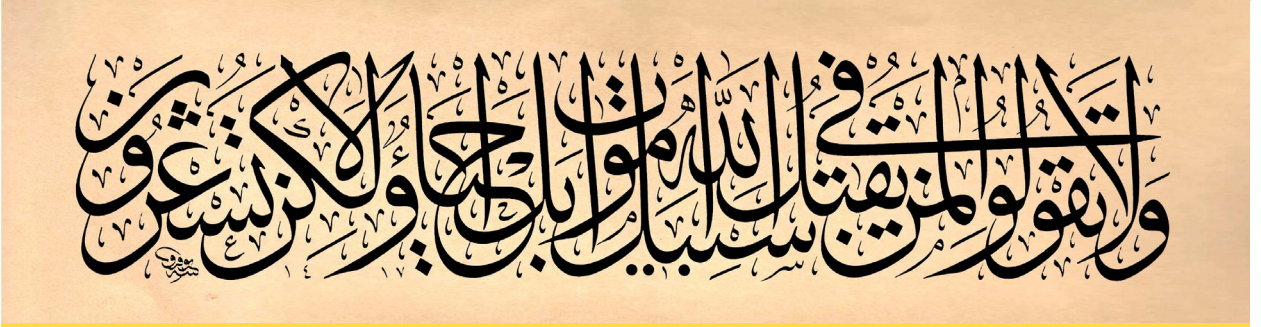 وَلَا تَقُولُوا لِمَنْ يُقْتَلُ فِي سَبِيلِ اللَّهِ أَمْوَاتٌ بَلْ أَحْيَاءٌ وَلَكِنْ لَا تَشْعُرُونَ